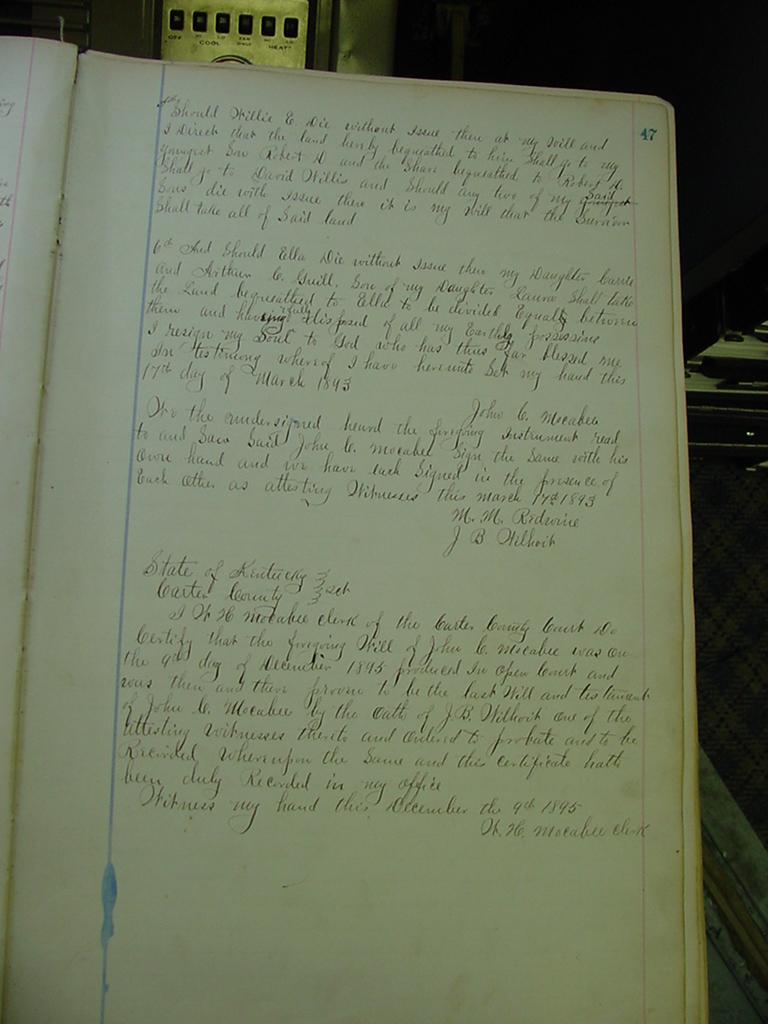 OFF LO HI FAN ONLY LO HI
COOL HEAT
47
5th Should Willie E. Die without Issue then at my Will and
I Direct that the land hereby bequeathed to him Shall go to my
youngest Son Robert D and the Share bequeathed to Robert D.
Shall go to David Willis and Should any two of my Said
Sons die with Issue then it is my Will that the Survivor
Shall take all of Said land
6th And Should Ella Die without Issue then my Daughter Carrie
and Arthur C. Guill, Son of my Daughter Laura Shall take
the Land bequeathed to Ella to be divided Equally between
them and having fully disposed of all my Earthly possessions
I resign my Soul to God who has thus far blessed me
In testimony whereof I have hereunto Set my hand this
17th day of March 1893
John C. Mocabee
We the undersigned heard the foregoing Instrument read
to and Saw Said John C. Mocabee Sign the Same with his
Own hand and we have each Signed in the presence of
Each Other as attesting Witnesses this March 17th 1893
M. M. Redwine
J B Wilhoit
State of Kentucky }
Carter County } Sct
I W H Mocabee clerk of the Carter County Court Do
Certify that the foregoing Will of John C. Mocabee was on
the 9th day of December 1895 produced In Open Court and
was then and there proven to be the last Will and testament
of John C. Mocabee by the Oath of J.B. Wilhoit One of the
attesting Witnesses thereto and Ordered to probate and to be
Recorded Whereupon the Same and this certificate hath
been duly Recorded in my Office
Witness my hand this December the 9th 1895
W. H. Mocabee Clerk